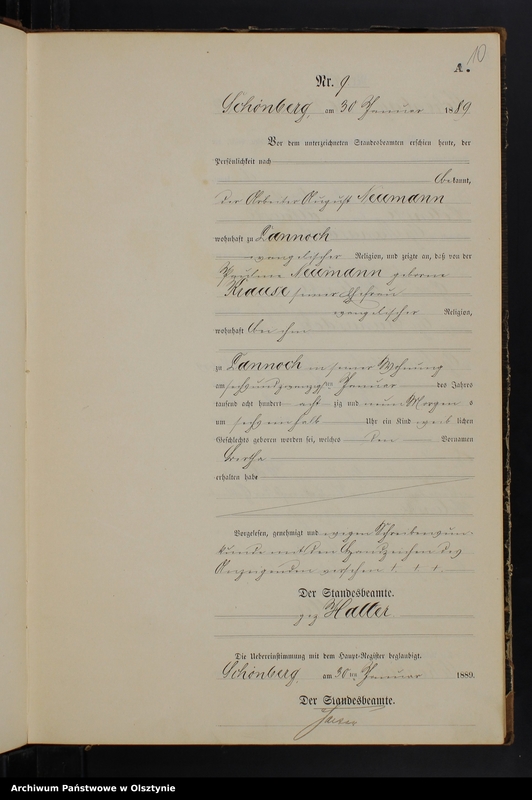 10
A.
Nr. 9
Schönberg, am 30 Januar 1889.
Vor dem unterzeichneten Standesbeamten erschien heute, der
Persönlichkeit nach
bekannt,
der Arbeiter August Neumann
wohnhaft zu Dannoch
evangelischer Religion, und zeigte an, daß von der
Pauline Neumann geborne
Krause seiner Ehefrau
evangelischer Religion,
wohnhaft bei ihm
zu Dannoch in seiner Wohnung
am sechsundzwanzigsten Januar des Jahres
tausend acht hundert acht zig und neun Morgens
um Uhr ein Kind weib lichen
Geschlechts geboren worden sei, welches den Vornamen
Bertha
erhalten habe
Vorgelesen, genehmigt und wegen Schreibensun-
kunde mit den Handzeichen des
Anzeigenden versehen + + +
Der Standesbeamte.
gez Haller
Die Uebereinstimmung mit dem Haupt-Register beglaubigt.
Schönberg am 30 ten Januar 1889.
Der Standesbeamte.
Archiwum Państwowe w Olsztynie